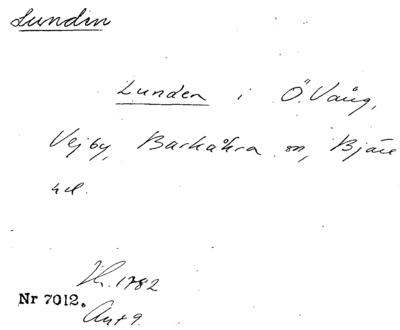 Lundin
Lunden i Ö. Vång,
Vejby, Barkåkra sn, Bjäre
hd.
Jh. 1782
Nr 7012.
Ant 9.